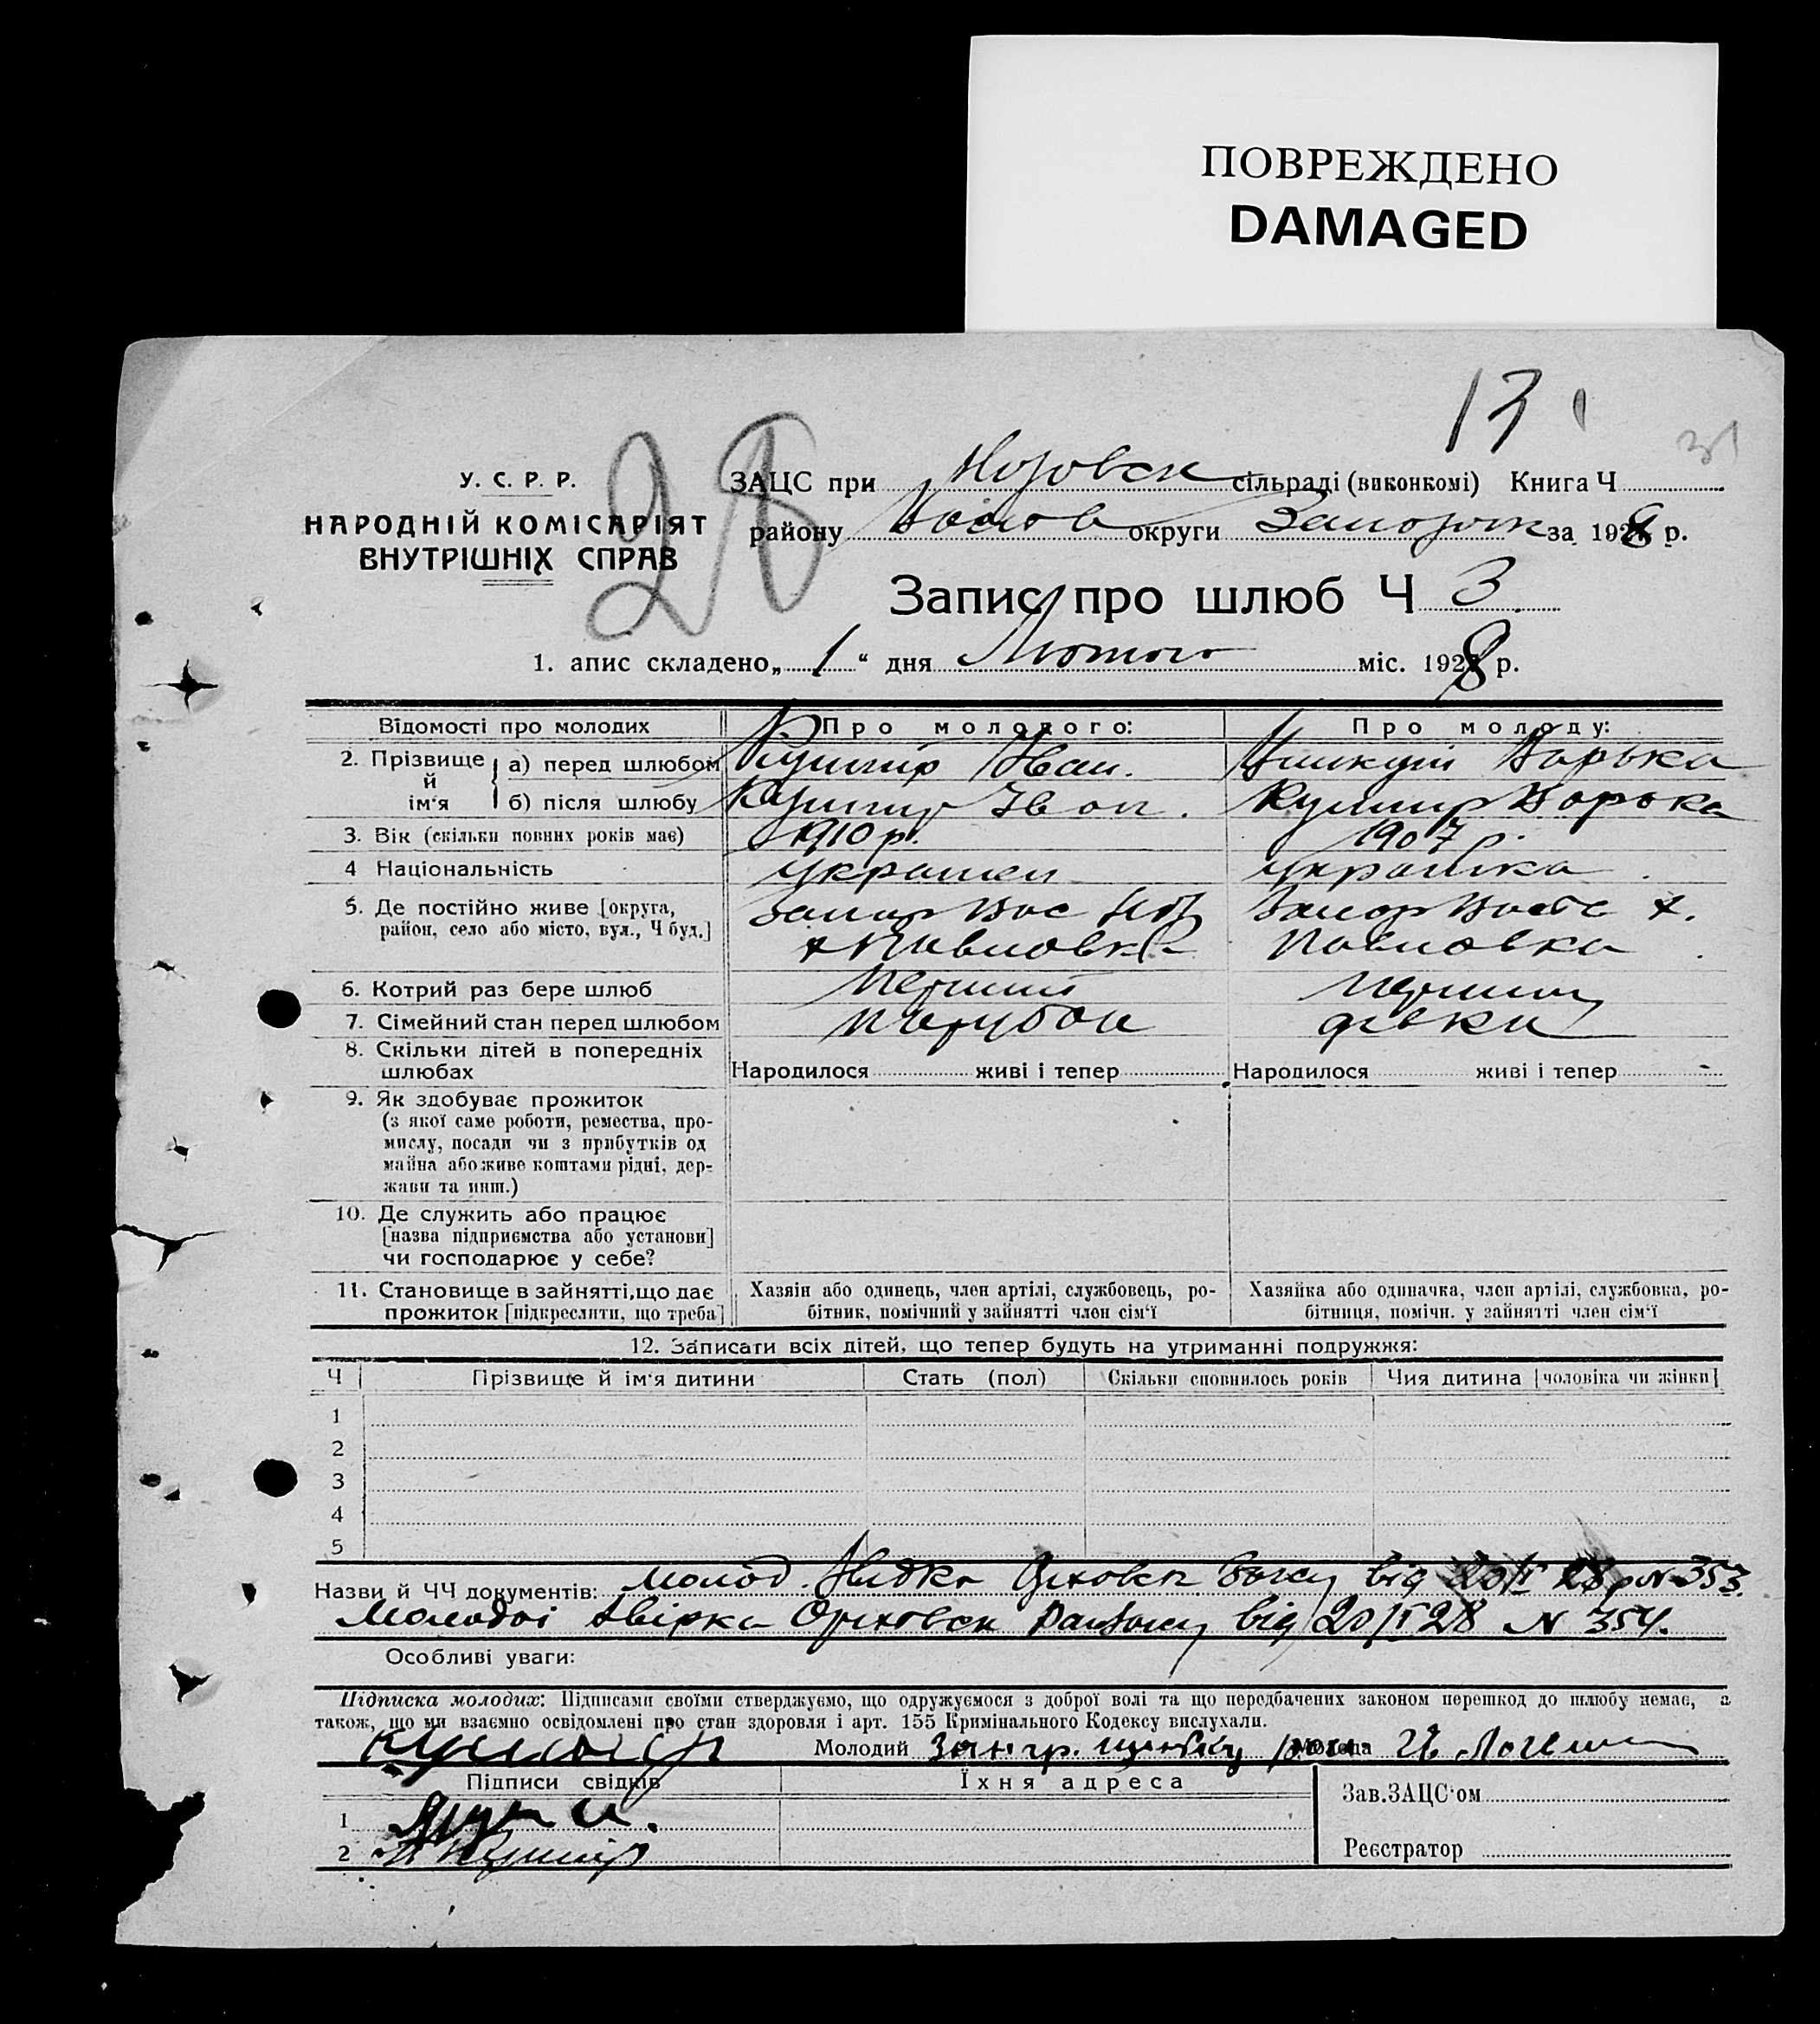 ПОВРЕЖДЕНО
DAMAGED
13
31
28
У. С. Р. Р.
НАРОДНІЙ КОМІСАРІЯТ
ВНУТРІШНІХ СПРАВ
ЗАЦС при сільраді (виконкомі) Книга Ч
району округи Запорож за 1928 р.
Запис про шлюб Ч 3
1. апис складено „ 1 “ дня Лютого міс. 1928 р.
Відомості про молодих Про молодого: Про молоду:
2. Прізвище й ім‘я а) перед шлюбом Кушнір Іван. Варька
б) після шлюбу Кушнір Іван. Кушнир Варька
3. Вік (скільки повних років має) 1910 р. 1907 р.
4 Національність українец українка
5. Де постійно живе [округа, Запор Вас Запор Вас х.
район, село або місто, вул., Ч буд.] х Павловка Павловка
6. Котрий раз бере шлюб перший перший
7. Сімейний стан перед шлюбом парубок дівка
8. Скільки дітей в попередніх
шлюбах Народилося живі і тепер Народилося живі і тепер -
9. Як здобуває прожиток
(з якої саме роботи, ремества, про-
мислу, посади чи з прибутків од
майна або живе коштами рідні, дер-
жави та инш.)
10. Де служить або працює
[назва підприємства або установи]
чи господарює у себе?
11. Становище в зайнятті, що дає Хазяін або одинець, член артілі, службовець, ро- Хазяйка або одиначка, член артілі, службовка, ро-
прожиток [підкреслити, що треба] бітник, помічний у зайнятті член сім‘ї бітниця, помічн. у зайнятті член сім‘ї
12. Записати всіх дітей, що тепер будуть на утриманні подружжя:
Ч Прізвище й ім‘я дитини Стать (пол) Скільки сповнилось років Чия дитина [чоловіка чи жінки]
1
2
3
4
5
Назви й ЧЧ документів: молод. від 20/I 28 р N 353
Молодої Оріховск від 20/I 28 N 354.
Особливі уваги:
Підписка молодих: Підписами своїми стверджуємо, що одружуємося з доброї волі та що передбачених законом перешкод до шлюбу немає, а
також, що ми взаємно освідомлені про стан здоровля і арт. 155 Кримінального Кодексу вислухали.
Кушнір Молодий за Молода
Підписи свідків Їхня адреса
Зав.ЗАЦС‘ом
1
2 Кушнір
Реєстратор